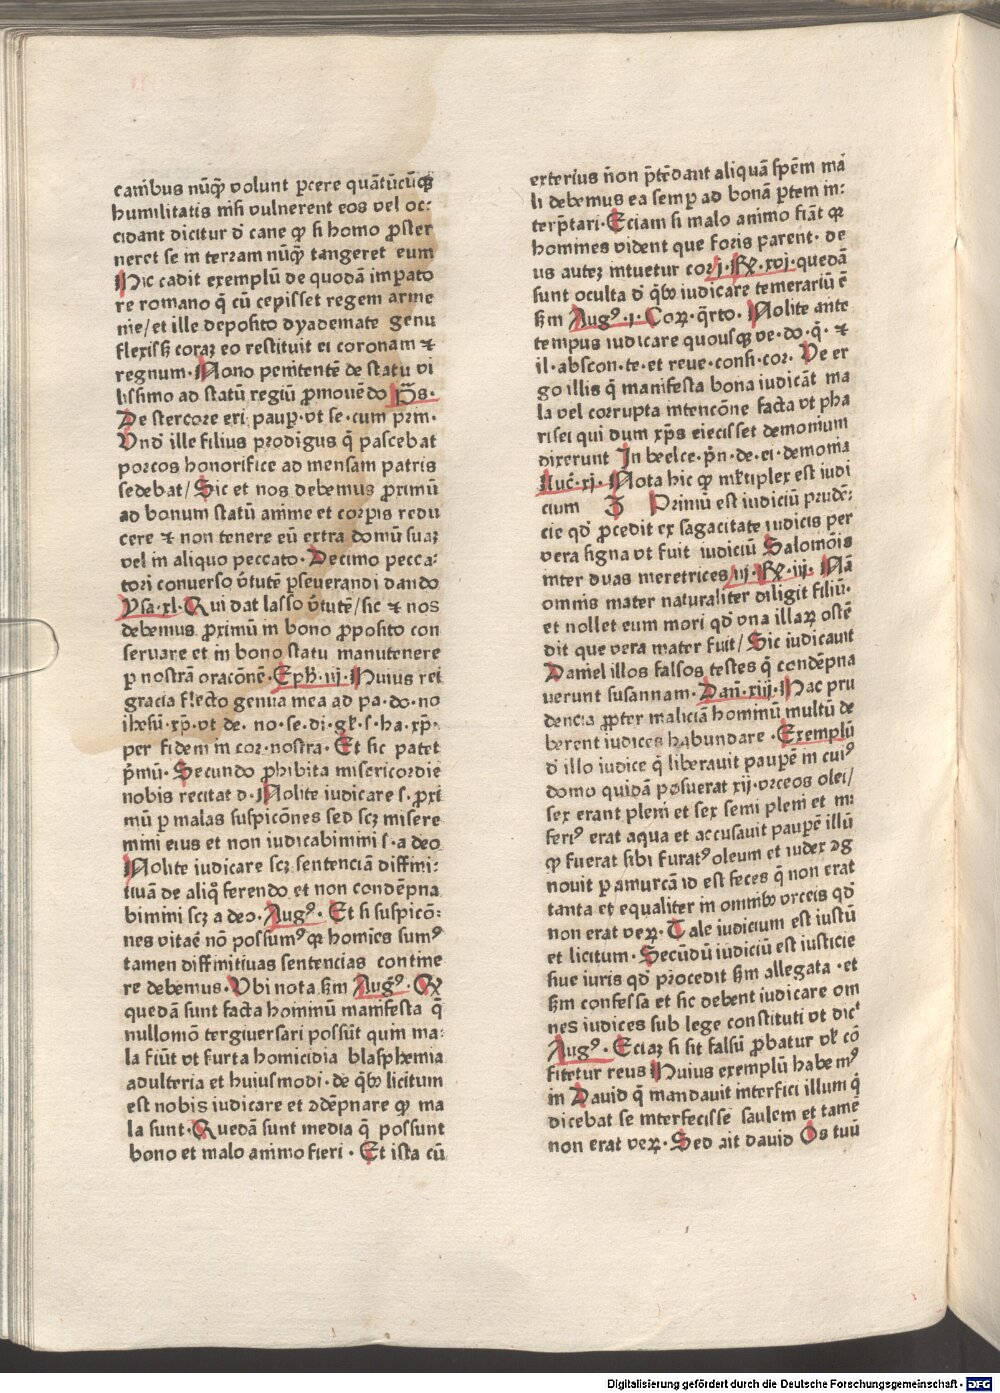 canibus nūqꝫ volunt ꝑcere quātūcūqꝫ
humilitatis nisi vulnerent eos vel oc⸗
cidant dicitur d̄ cane ꝙ si homo ꝓster
neret se in terram nūqꝫ tangeret eum
Hic cadit exemplū de quodā impato
re romano q̄ cū cepisset regem arme
nie/et ille deposito dyademate genu
flexisꝫ coraꝫ eo restituit ei coronam ⁊
regnum·Nono penitentē de statu vi
lissimo ad statū regiū ꝓmouēdo p̄s·
De stercore eri pauꝑ·vt se·cum prin·
Vnd ille filius prodigus q̄ pascebat
porcos honorifice ad mensam patris
sedebat/Sic et nos debemus ꝓximū
ad bonum statū anime et corꝑis redu
cere ⁊ non tenere eū extra domū suaꝫ
vel in aliquo peccato·Decimo pecca⸗
tori conuerso v̄tutē ꝑseuerandi dando
Ysa·xl·Qui dat lasso v̄tutē/sic ⁊ nos
debemus ꝓximū in bono ꝓposito con
seruare et in bono statu manutenere
ꝑ nostrā oracōnē·Eph·iij·Huius rei
gracia flecto genua mea ad pa·do·no
ihesū·xp̄·vt de·no·se·di·gl̄·s·ha·xp̄·
per fidem in cor·nostra·Et sic patet
p̄mū·Secundo ꝓhibita misericordie
nobis recitat d·Nolite iudicare s·ꝓxi
mū ꝑ malas suspicōnes sed scꝫ misere
mini eius et non iudicabimini s·a deo
Nolite iudicare scꝫ sentenciā diffini⸗
tiuā de aliq̄ ferendo et non condēpna
bimini scꝫ a deo·Augꝰ·Et si suspicō⸗
nes vitaē nō possumꝰ qꝫ homies sumꝰ
tamen diffinitiuas sentencias contine
re debemus·Vbi nota sꝫm Augꝰ·Qꝫ
quedā sunt facta hominū manifesta q̄
nullomō tergiuersari possūt quin ma⸗
la siūt vt furta homicidia blasphemia
adulteria et huiusmodi·de qꝫ licitum
est nobis iudicare et ꝯdēpnare ꝙ ma
la sunt·Quedā sunt media q̄ possunt
bono et malo animo fieri·Et ista cū
exterius non p̄tēdant aliquā spēm ma
li debemus ea semꝑ ad bonā ꝑtem in⸗
terp̄tari·Eciam si malo animo fiāt qꝫ
homines vident que foris parent·de
us auteꝫ intuetur cor·j·Rꝫ·xvj·quedā
sunt oculta d̄ qꝫ iudicare temerariū ē
sꝫm Augꝰ·i·Coꝝ·q̄rto·Nolite ante
tempus iudicare quousqꝫ ve·do·q̄·⁊
il·abscon·te·et reue·consi·cor·Ve er
go illis q̄ manifesta bona iudicāt ma
la vel corrupta intencōne facta vt pha
risei qui dum xp̄s eiecisset demonium
dixerunt In beelce·pn̄·de·ei·demonia
Luc̄·xj·Nota hic ꝙ ml̄tiplex est iudi
cium 3 Primū est iudiciū prudē⸗
cie qd̄ ꝓcedit ex sagacitate iudicis per
vera signa vt fuit iudiciū Salomōis
inter duas meretrices iij·Rꝫ·iij·Nā
omnis mater naturaliter diligit filiū·
et nollet eum mori qd̄ vna illaꝝ ostē
dit que vera mater fuit/Sic iudicauit
Daniel illos falsos testes q̄ condēpna
uerunt susannam·Dan̄·xiij·Hac pru
dencia ꝓpter maliciā hominū multū de
berent iudices habundare·Exemplū
d̄ illo iudice q̄ liberauit paupēm cuiꝰ
domo quidā posuerat xij·vrceos olei/
sex erant pleni et sex semi pleni et in⸗
feriꝰ erat aqua et accusauit paupē illū
ꝙ fuerat sibi furatꝰ oleum et iudex ꝯg
nouit ꝑ amurcā id est feces q̄ non erat
tanta et equaliter in omnibꝫ vrceis qd̄
non erat veꝝ·Tale iudicium est iustū
et licitum·Secūdū iudiciū est iusticie
siue iuris qd̄ ꝓcedit sꝫm allegata·et
sꝫm confessa et sic debent iudicare om
nes iudices sub lege constituti vt dicͭ
Augꝰ·Eciaꝫ si sit falsū ꝓbatur vl̄ cō
fitetur reus Huius exemplū habemꝰ
in Dauid q̄ mandauit interfici illum q̄
dicebat se interfecisse saulem et tamē
non erat veꝝ·Sed ait dauid Os tuū
Digitalisierung gefördert durch die Deutsche Forschungsgemeinschaft - DFG